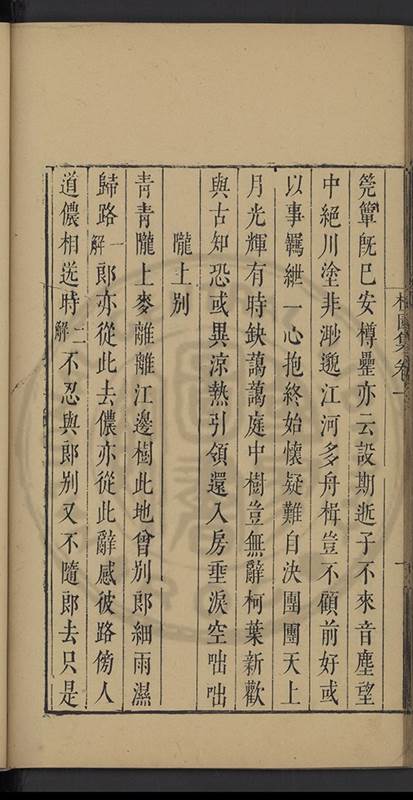 筦簟既已安樽罍亦云設期逝子不來音塵望
中絕川塗非渺邈江河多舟楫豈不顧前好或
以事羈紲一心抱終始懷疑難自決團團天上
月光輝有時缺藹藹庭中樹豈無辭柯葉新歡
與古知恐或異涼熱引領還入房垂淚空咄咄
隴上別
青青隴上麥離離江邊樹此地曾別郎細雨濕
歸路一解郎亦從此去儂亦從此辭感彼路傍人
道儂相送時二解不忍與郎別又不隨郎去只是